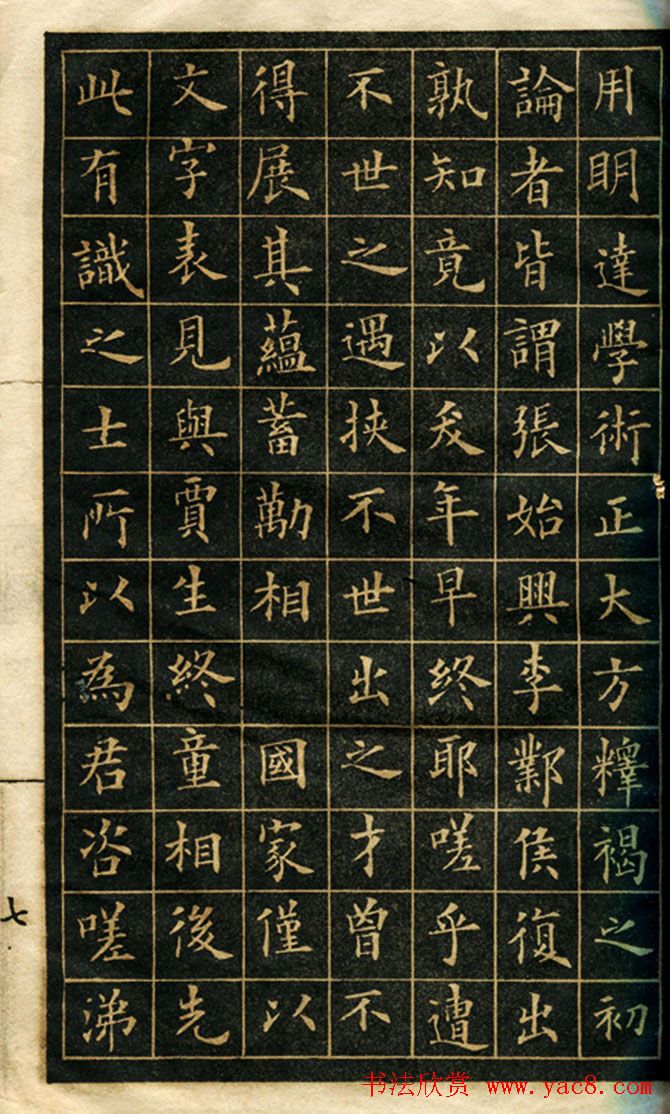 用明達學術正大方釋褐之初
論者皆謂張始興李鄴侯復出
孰知竟以夭年早終耶嗟乎遭
不世之遇挾不世出之才曾不
得展其蘊蓄勷相國家僅以
文字表見與賈生終童相後先
此有識之士所以為君咨嗟涕
七
书法欣赏 www.yac8.com